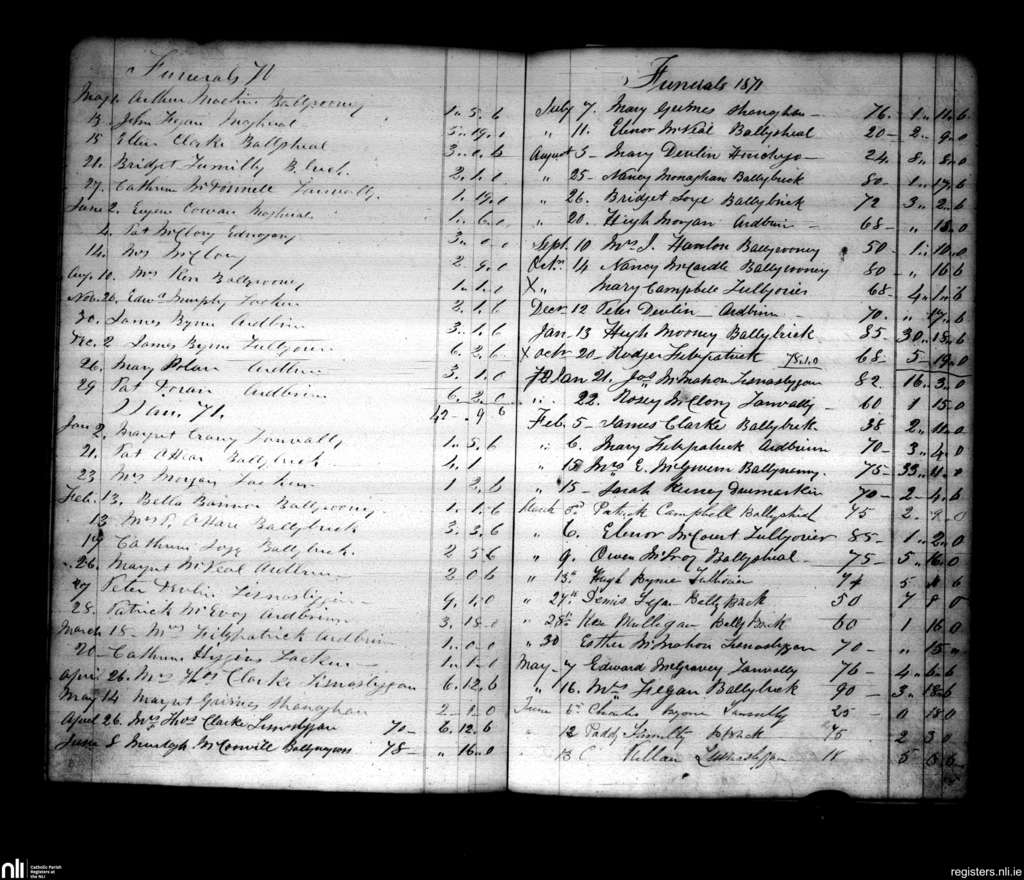 Funerals 71
May 1 Arthur Machin Ballywooney 1.. 5. 6
13. John Fegan Magheral 5.. 19. 0
15 Ellen Clarke Ballysheal 3.. 0. 6
21. Bridget Tumilly B. 2. 1. 0
27. Cathrine McConnell Tanvally 1. 19. 0
June 2. Eugene Cowan Magheral 1. 6. 0
4. Pat McClory Ednagany 3.. 0.. 0
14. Mrs McClory 2. 9. 0
Aug. 10. Mrs Kerr Ballywooney 1.. 1. 0
Nov. 26. Edwd Murphy Lacken 2. 1. 6
30. James Byrne Ardbrin 3.. 1. 6
Dec. 2 James Byrne Tullyorier 6. 2. 6
26. Mary Polan Ardbrin 3. 1. 0
29 Pat Doran Ardbrin 6. 2. 0
Jan. 71. 42 - . 9 6
Jan 2. Margret Crany Tanvally 1.. 5. 6
21. Pat OHare Ballybrick 4. 1
23 Mrs Morgan Lacken 1 2. 6
Feb. 13. Bella Bannon Ballywooney 1.. 1. 6
13. Mrs P. OHare Ballybrick 3. 3. 6
19 Cathrine Loye Ballybrick. 2 5 6
26. Margret McNeal Ardbrin 2 0 6
27 Peter Devlin Lisnasliggan 9. 1. 0
28. Patrick McEvoy Ardbrin 3. 18. 0
March 18 - Mrs Fitzpatrick Ardbrin 1. 0. 0
20 - Cathrine Higgins Lacken 1.. 1. 0
April 26. Mrs Thos Clarke Lisnasliggan 6. 12. 6
May 14 Margret Grimes Shanaghan 2 - 1. 0
April 26. Mrs Thos Clarke Lisnasliggan 70 - 6. 12. 6
June 8 Murtagh McConville Ballynagross 78 - .. 16. 0
Funerals 1871
July 7. Mary Grimes Shanaghan - 76. - 1.. 11.. 6
" 11. Elinor McNeal Ballysheal 20 - 2.. 9. 0
August 3 - Mary Devlin 24. 8.. 8.. 0
" 25 - Nancy Monaghan Ballybrick 80 - 1.. 17. 6
" 26. Bridget Loye Ballybrick 72 3.. 2. 6
" 20. Hugh Morgan Ardbrin - 68 - " 18. 0
Sept. 10 Mrs J. Hanlon Ballywooney 50 - 1.. 10. 0
Octr 14 Nancy McCardle Ballywooney 80 - " 16 6
X " Mary Campbell Tullyorier 68 - 4.. 1.. 6
Decr 12 Peter Devlin Ardbrin 70. " 17.. 6
Jan 13 Hugh Mooney Ballybrick 85. 30 18. 6
X octr 20 - Rodger Fitzpatrick 78.1.0 68. 5 - 19. 0
72 Jan 21. Jos McMahon Lisnasliggan 82. 16. 3. 0
" 22. Rosey McClory Tanvally - 60 1 15. 0
Feb. 5 - James Clarke Ballybrick 38 2.. 11.. 0
" 6. Mary Fitzpatrick Ardbrinn 70 - 3.. 4. 0
" 15 Mrs E. McGivern Ballynanny. 75 - 33. 11. 0
" 15 - Sarah Kerney 70 - 2 - 4. 6
March 5th Patrick Campbell Ballysheal 75 2. 9. 0
" 6. Elenor McCourt Tullyorier 85 - 1.. 2. 0
" 9. Owen McEvoy Ballysheal. 75 - 5.. 16. 0
" 13th Hugh Byrne 74 5 4 6
" 27th Denis Fegan Bally Back 50 7 8 0
" 28th Mulligan Bally Back 60 1 16 0
" 30 Esther McMahon Lisnasliggan 70 - " 15 "
May - 7 Edward McGravey Tanvally 76 - 4.. 6.. 6
" 16. Mrs Fegan Ballybrick 90 - 3.. 18.. 6
June 6th Charles Byrne 25 - 0 18 0
" 12 Paddy Tumilty 75 - 2 3 0
" 13 C Killan Lisnasliggan 18 5 15 6
nli Catholic Parish Registers at the NLI
registers.nli.ie